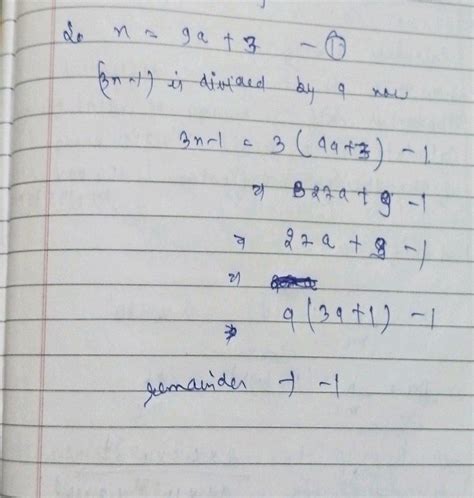 n = 9a + 3 - ①
(3n-1) is divided by 9
3n-1 = 3 (9a+3) -1
27a + 9 -1
27a + 9 -1
9 (3a+1) -1
remainder → -1